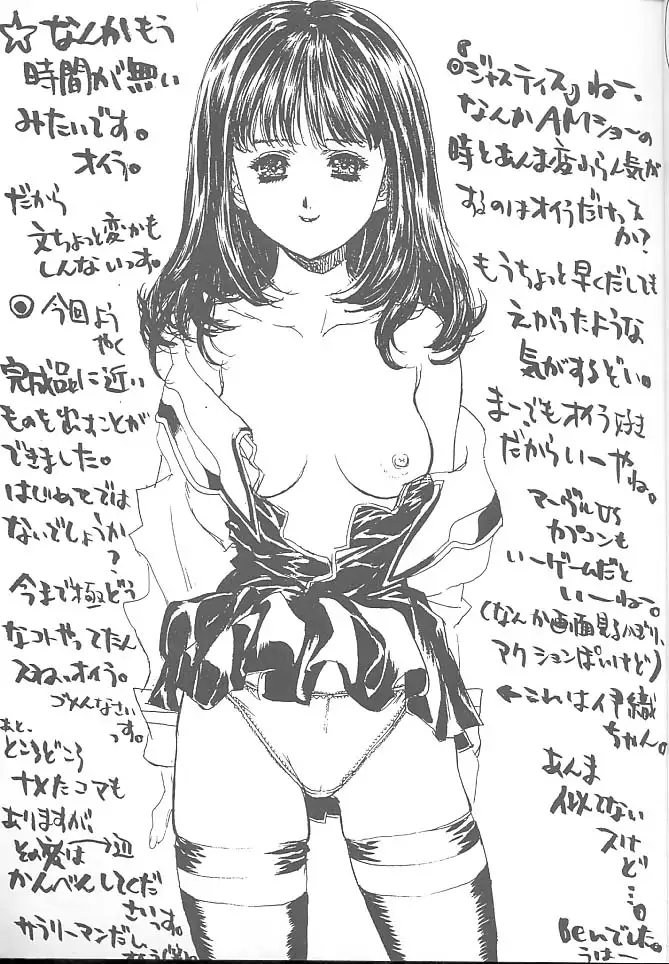 ☆なんかもう
時間が無い
みたいです。
オイラ。
だから
文ちょっと変かも
しんないっす。
◎今回よう
やく
完成品に近い
ものを出すことが
できました。
はじめてでは
ないでしょうか
?
今まで極どう
なコトやってたん
スねぃオイラ。
ゴメんなさい
っす。
あと、
ところどころ
ナメたコマも
ありますが、
その変は→辺
かんべんしてくだ
さいっす。
サラリーマンだし
『ジャスティス』ねー、
なんかAMショーの
時とあんま変わらん気が
するのはオイラだけっスか?
もうちょっと早くだしても
えがったような
気がするぞい。
まーでもオイラ好き
だからいーやね。
マーヴルVS
カプコンも
いーゲームだと
いーねー。
(なんか画面見るかぎり、
アクションぽいけど)
←これは伊織
ちゃん。
あんま
似てない
スけ
ど…。
Benでした。
うはー